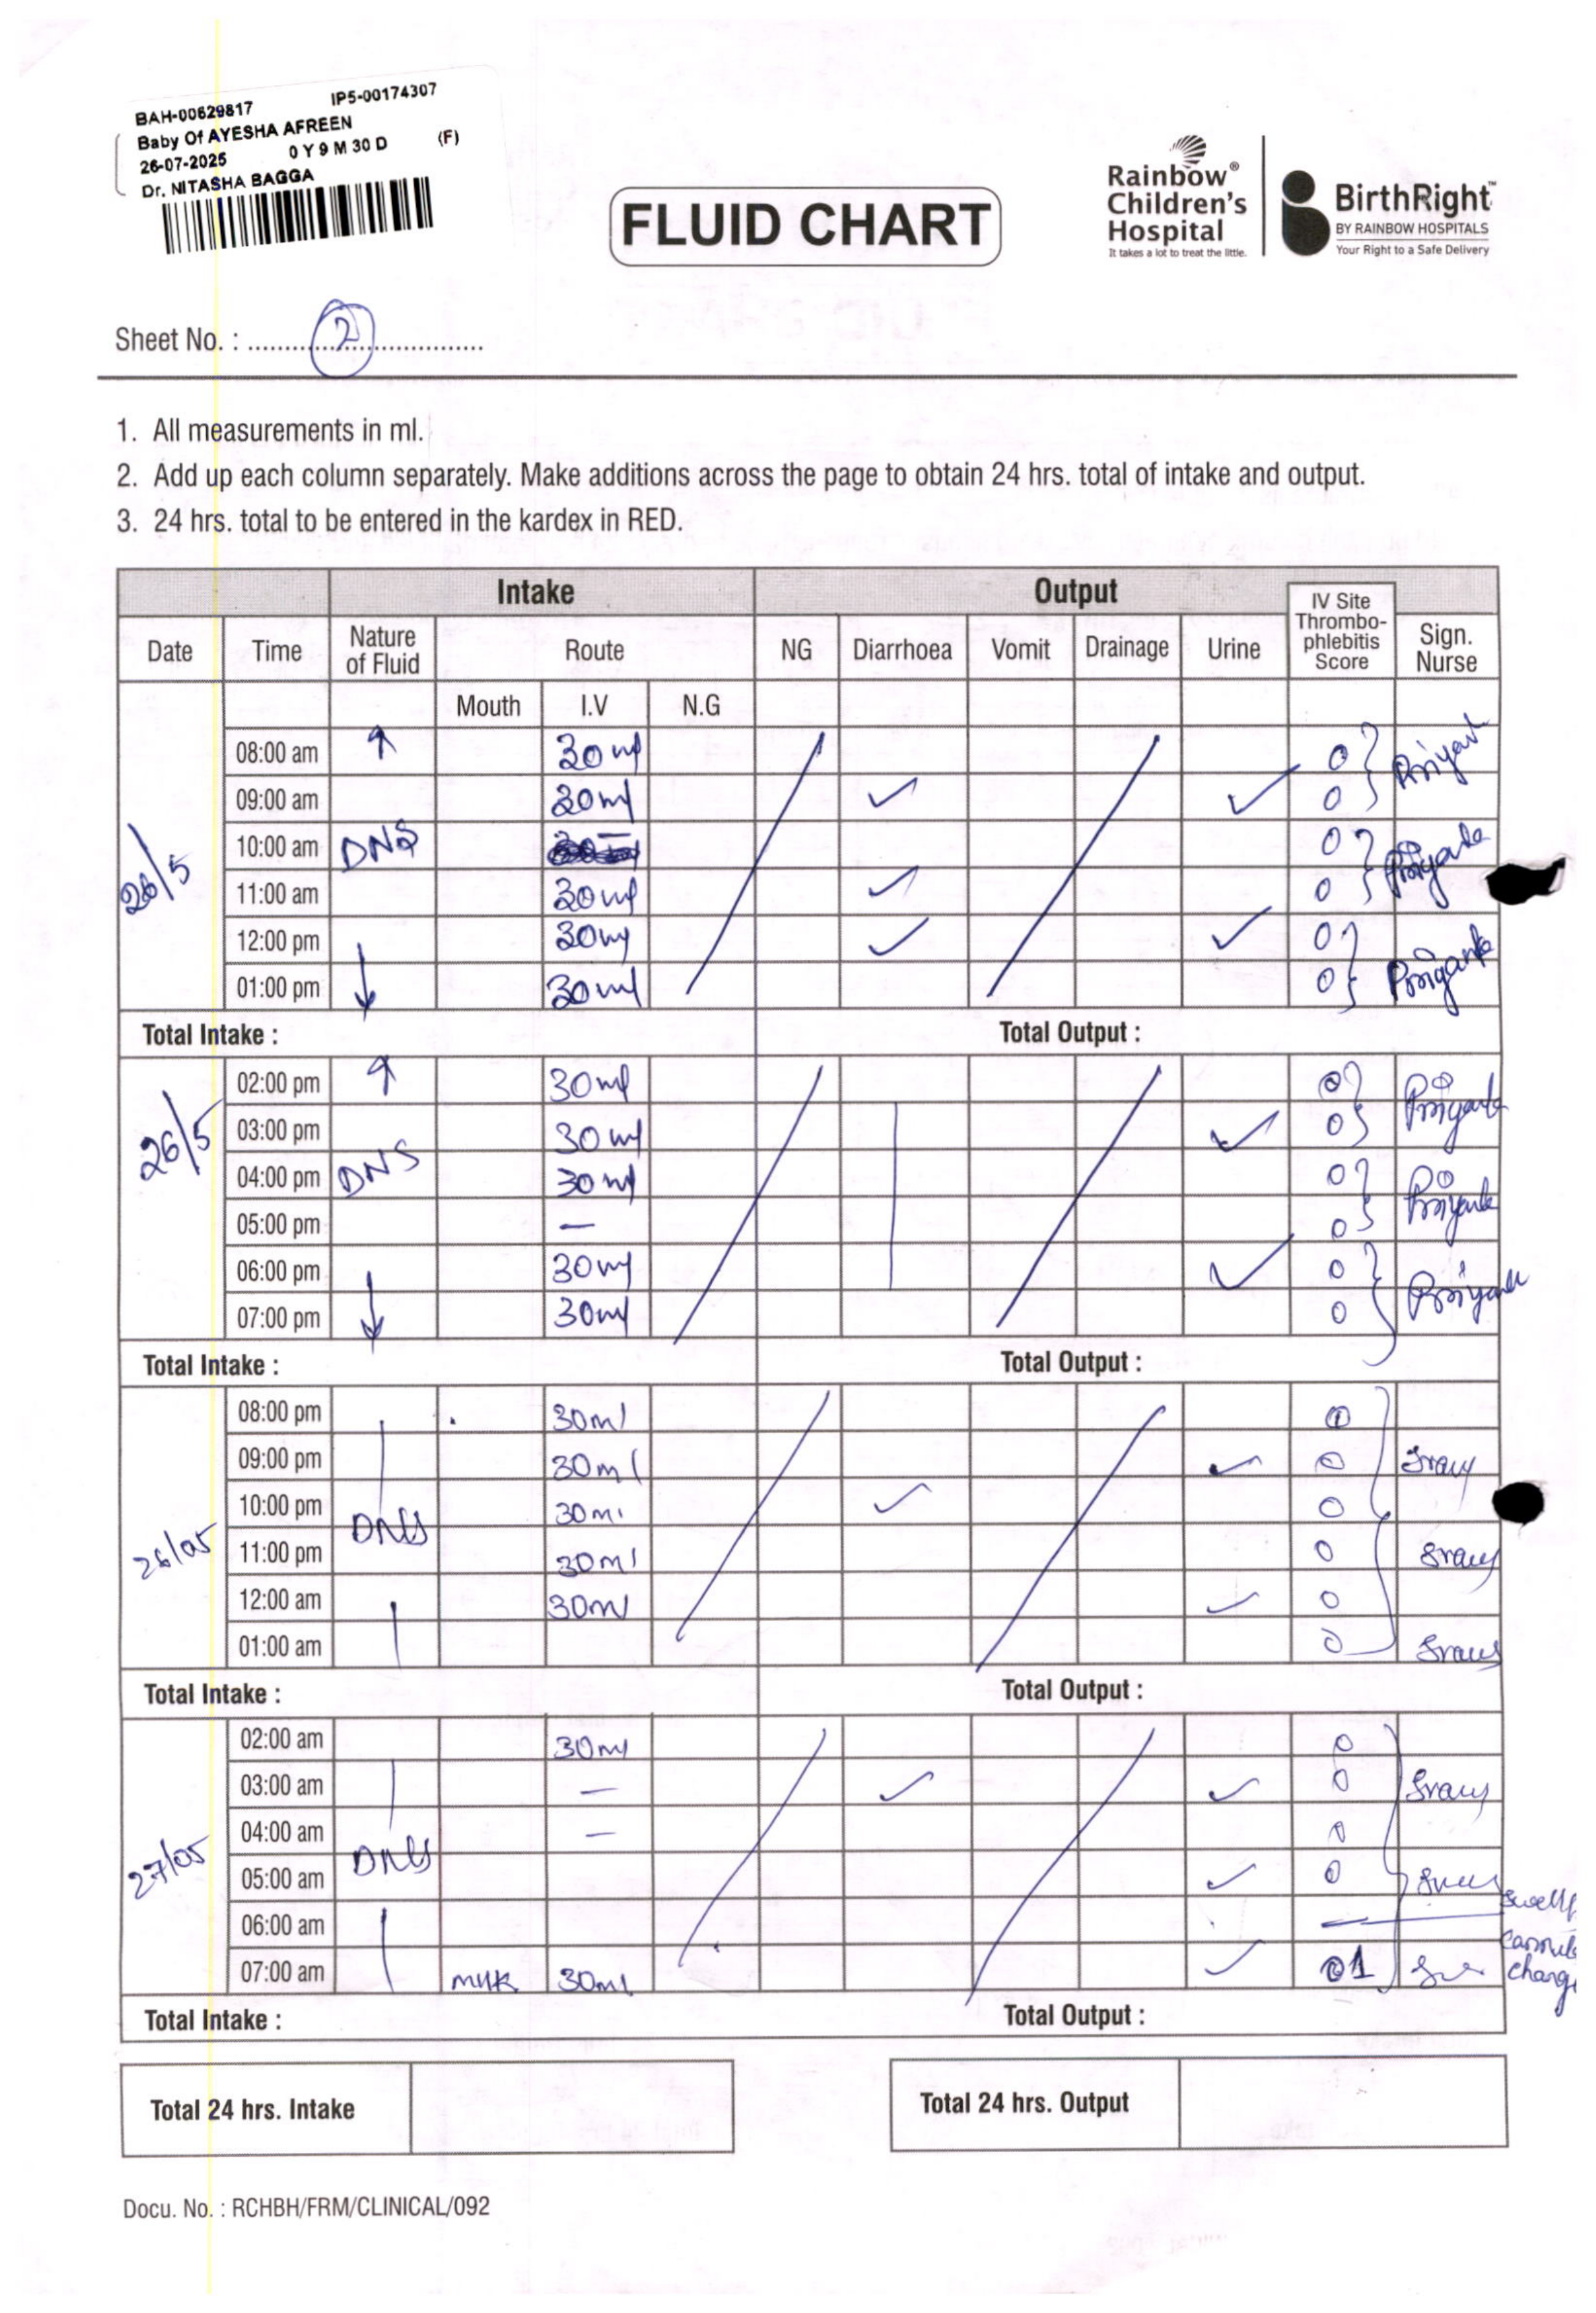 BAH-00629817 IP5-00174307
Baby Of AYESHA AFREEN
26-07-2025 0 Y 9 M 30 D (F)
Dr. NITASHA BAGGA
FLUID CHART
Rainbow®
Children's
Hospital
It takes a lot to treat the little.
BirthRight™
BY RAINBOW HOSPITALS
Your Right to a Safe Delivery
Sheet No. : 2
1. All measurements in ml.
2. Add up each column separately. Make additions across the page to obtain 24 hrs. total of intake and output.
3. 24 hrs. total to be entered in the kardex in RED.
Intake Output
Date Time Nature of Fluid Route NG Diarrhoea Vomit Drainage Urine IV Site Thrombo-phlebitis Score Sign. Nurse
Mouth I.V N.G
26/5
08:00 am ↑ 30ml 0 Priyanka
09:00 am 30ml ✓ ✓ 0
10:00 am DNS — 0 Priyanka
11:00 am 30ml ✓ 0
12:00 pm 30ml ✓ ✓ 0 Priyanka
01:00 pm ↓ 30ml 0
Total Intake : Total Output :
26/5
02:00 pm ↑ 30ml 0 Priyanka
03:00 pm 30ml ✓ 0
04:00 pm DNS 30ml 0 Priyanka
05:00 pm — 0
06:00 pm 30ml ✓ 0 Priyanka
07:00 pm ↓ 30ml 0
Total Intake : Total Output :
26/05
08:00 pm 30ml 0
09:00 pm 30ml ✓ 0 Sravy
10:00 pm DNS 30ml ✓ 0
11:00 pm 30ml 0 Sravy
12:00 am 30ml ✓ 0
01:00 am 0 Sravy
Total Intake : Total Output :
27/05
02:00 am 30ml 0
03:00 am — ✓ ✓ 0 Sravy
04:00 am — 0
05:00 am DNS ✓ 0
06:00 am —
07:00 am milk 30ml ✓ 01 change
Total Intake : Total Output :
Total 24 hrs. Intake Total 24 hrs. Output
Docu. No. : RCHBH/FRM/CLINICAL/092